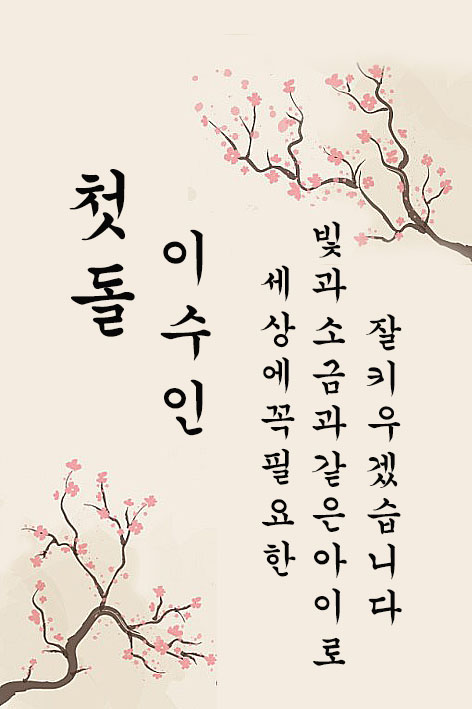 첫돌
이수인
세상에꼭필요한
빛과소금과같은아이로
잘키우겠습니다